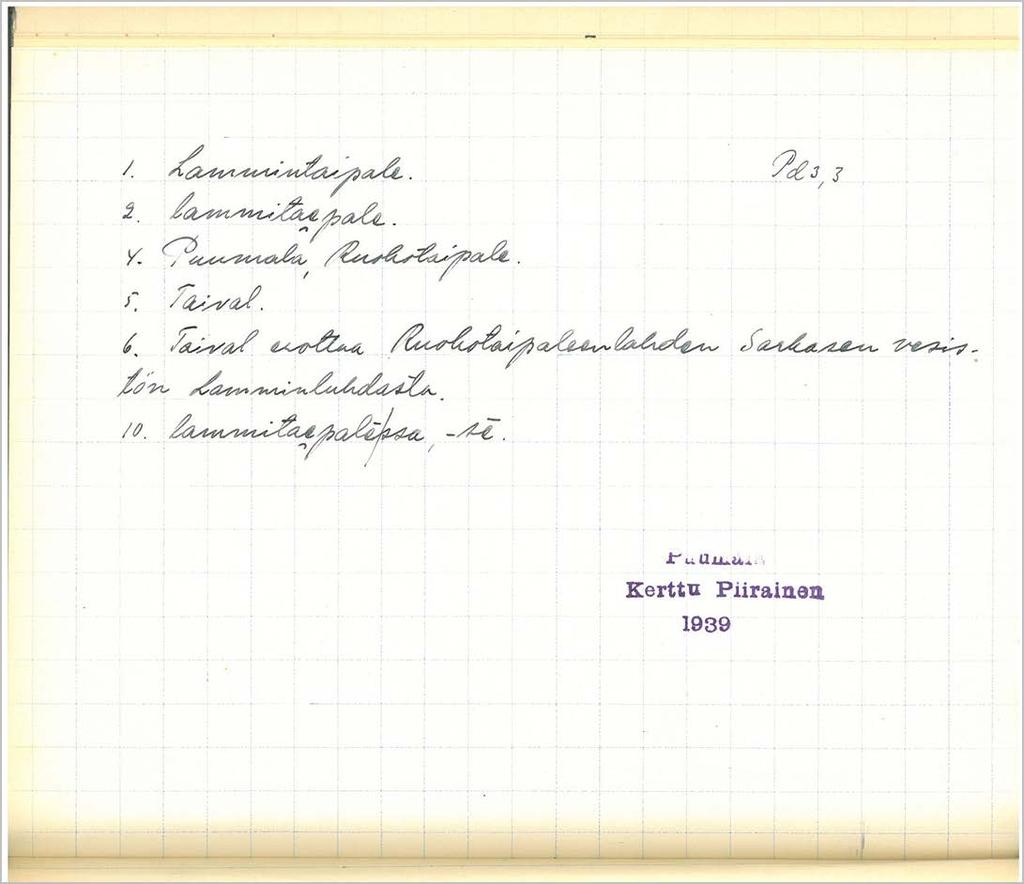 1. Lammintaipale. Pd3,3
2. lammitae̮pale.
4. Puumala, Ruohotaipale.
5. Taival.
6. Taival erottaa Ruohotaipaleenlahden Sarkasen vesis-
tön Lamminluhdasta.
10. lammitae̮palē/ssa, -sē.
Kerttu Piirainen
1939